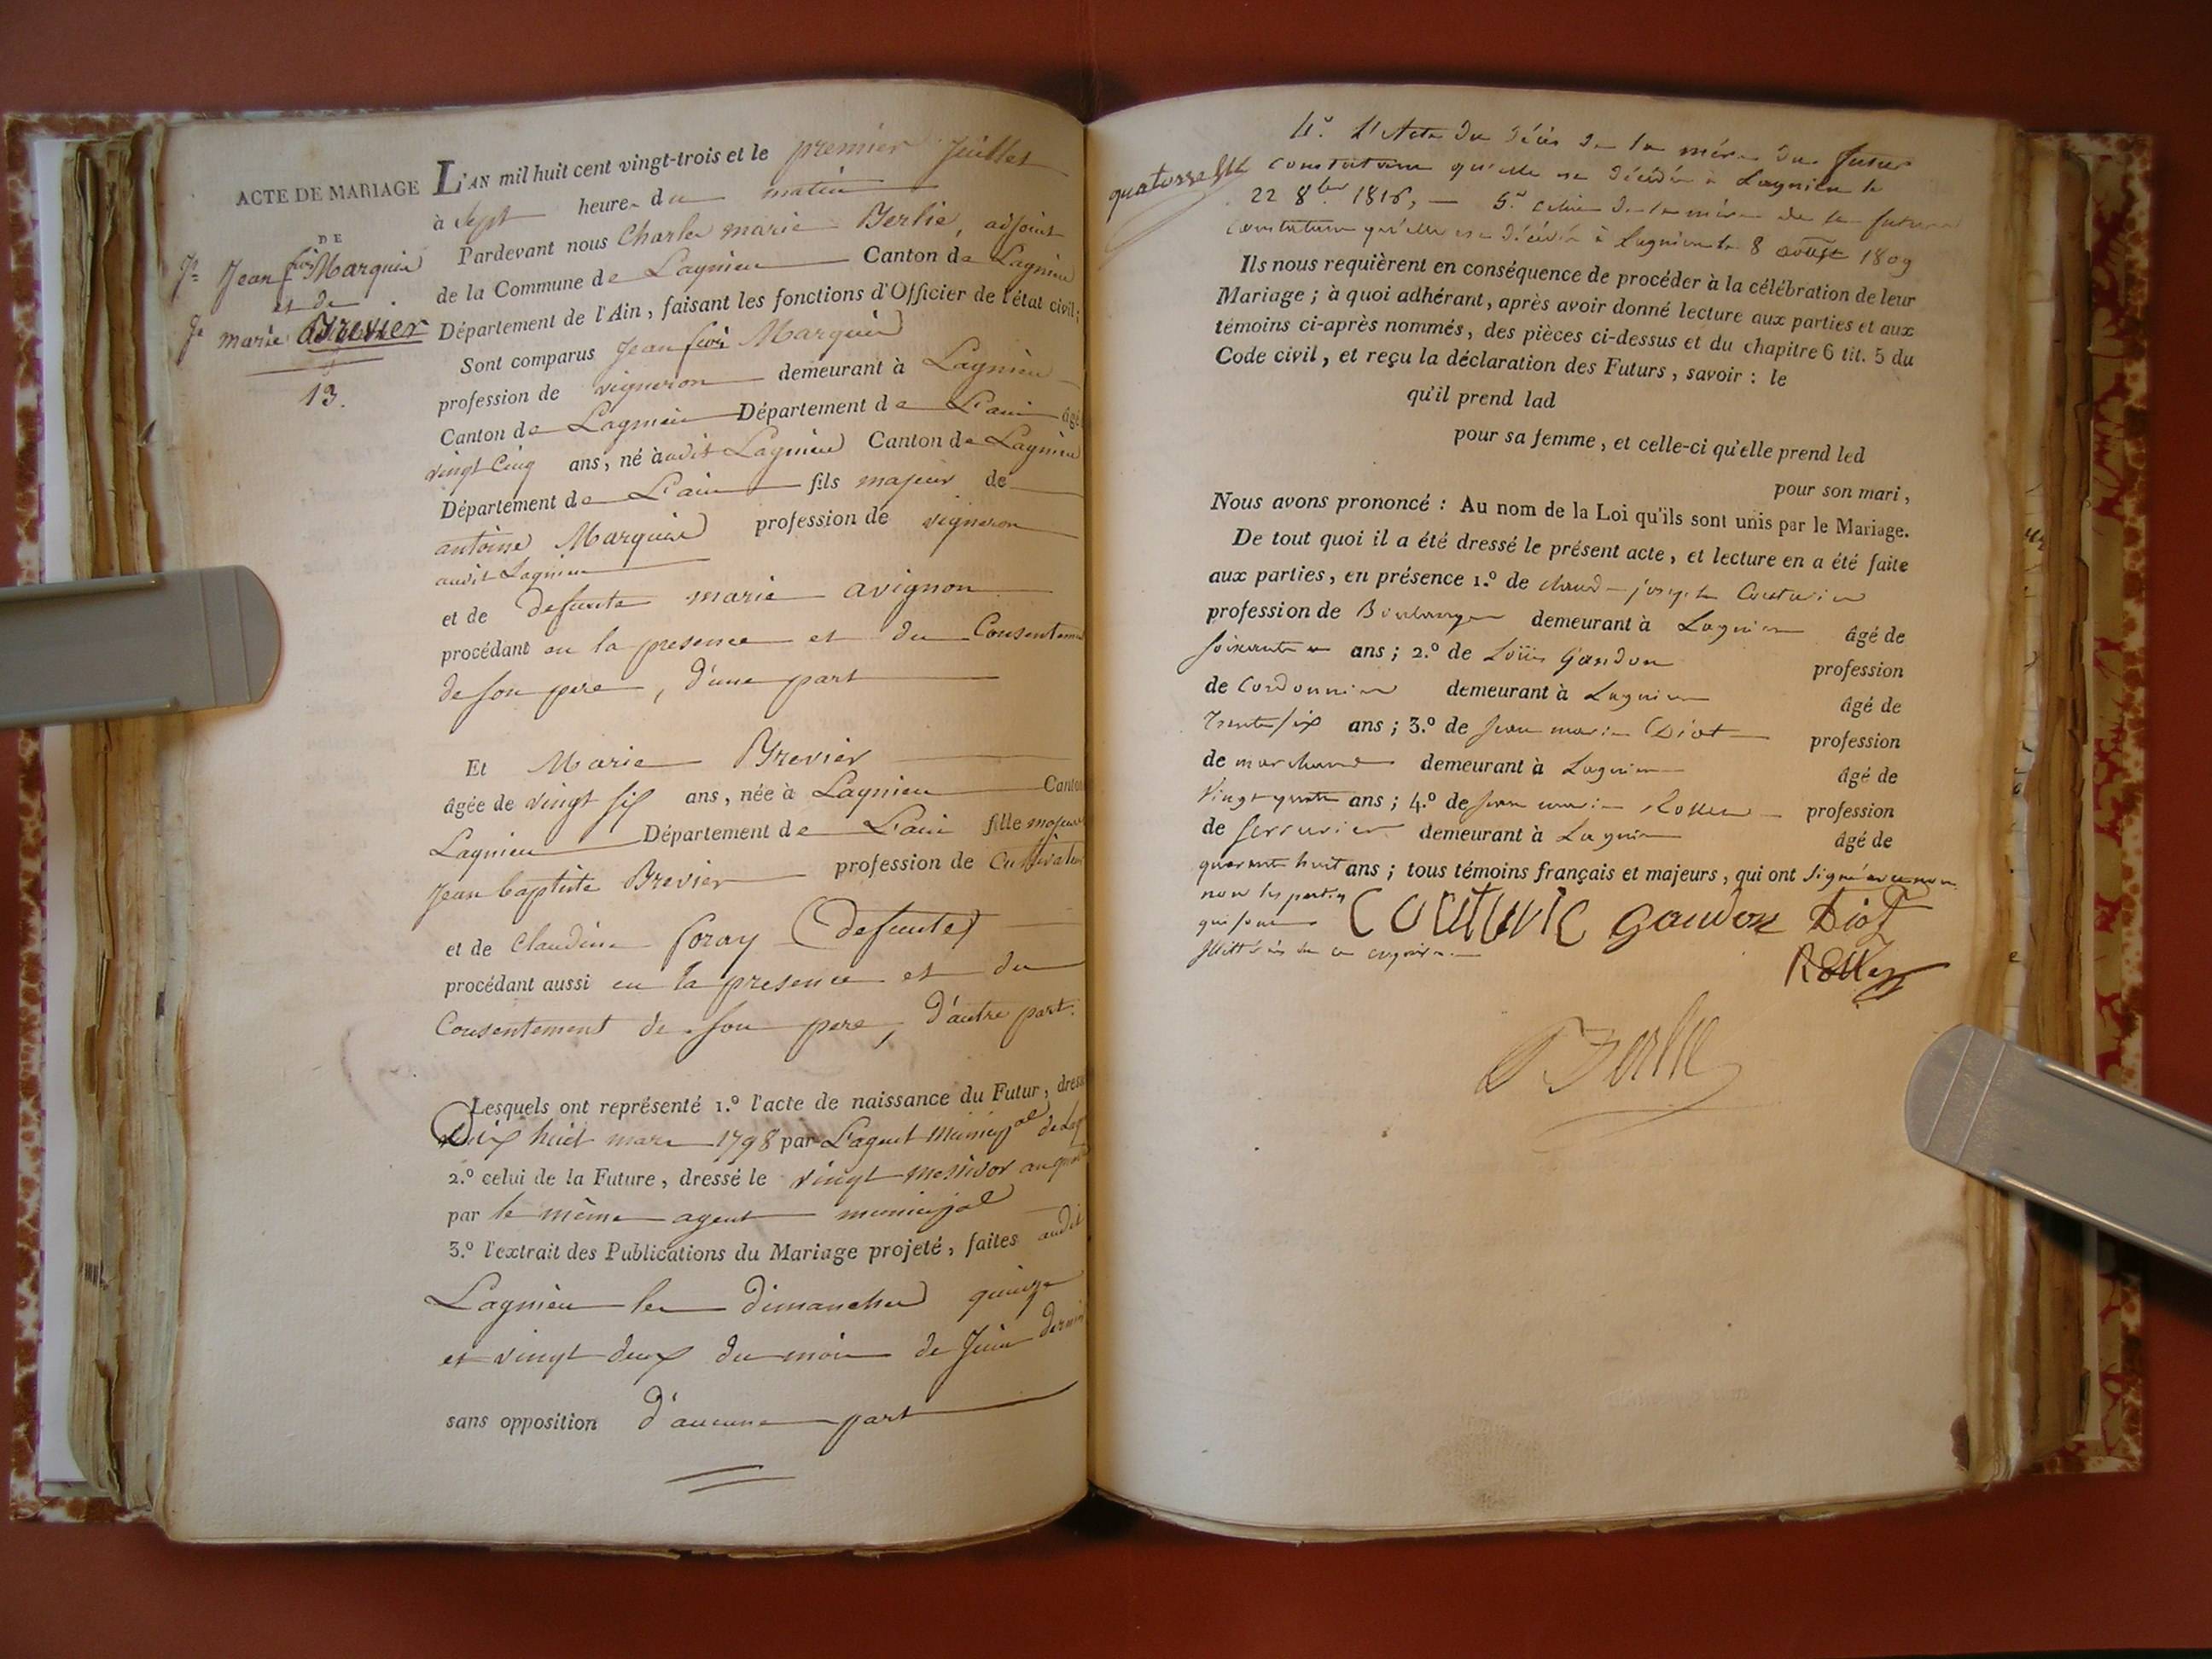 ACTE DE MARIAGE
DE
Jn Jean fçois Marquis
et de
Je marie Brevier
13.
L'AN mil huit cent vingt-trois et le premier Juillet
à Sept heures du matin
Pardevant nous Charles marie Berlie, adjoint
de la Commune de Lagnieu Canton de Lagnieu
Département de l'Ain, faisant les fonctions d'Officier de l'état civil;
Sont comparus Jean fçois Marquis
profession de vigneron demeurant à Lagnieu
Canton de Lagnieu Département de L'ain âgé
vingt Cinq ans, né audit Lagnieu Canton de Lagnieu
Département de L'ain fils majeur de
antoine Marquis profession de vigneron
audit Lagnieu
et de defunte marie avignon
procédant en la presence et du Consenteme
de son pere, d'une part
Et Marie Brevier
âgée de vingt six ans, née à Lagnieu Canton
Lagnieu Département de L'ain fille majeure
Jean baptiste Brevier profession de Cultivateur
et de Claudine foray (defunte)
procédant aussi en la presence et du
Consentement de son pere, d'autre part.
Lesquels ont représenté 1.º l'acte de naissance du Futur, dress
Dix huit mars 1798 par L'agent Municipal de Lag
2.º celui de la Future, dressé le vingt messidor an
par le même agent municipal
3.º l'extrait des Publications du Mariage projeté, faites audit
Lagnieu les dimanches quinze
et vingt deux du mois de Juin dernier
sans opposition d'aucune part
quatorze
4.º L'Acte du décès de la mère du futur
constatant qu'elle est décédée à Lagnieu le
22 8bre 1816, — 5.º celui de la mère de la future
constatant qu'elle est décédée à Lagnieu le 8 aoust 1809
Ils nous requièrent en conséquence de procéder à la célébration de leur
Mariage; à quoi adhérant, après avoir donné lecture aux parties et aux
témoins ci-après nommés, des pièces ci-dessus et du chapitre 6 tit. 5 du
Code civil, et reçu la déclaration des Futurs, savoir: le
qu'il prend lad
pour sa femme, et celle-ci qu'elle prend led
pour son mari,
Nous avons prononcé: Au nom de la Loi qu'ils sont unis par le Mariage.
De tout quoi il a été dressé le présent acte, et lecture en a été faite
aux parties, en présence 1.º de claude joseph Couturier
profession de Boulanger demeurant à Lagnieu âgé de
soixante ans; 2.º de Loüis Gandon profession
de Cordonnier demeurant à Lagnieu âgé de
Trente six ans; 3.º de jean marie Diot profession
de marchand demeurant à Lagnieu âgé de
Vingt quatre ans; 4.º de jean marie Rollet profession
de serrurier demeurant à Lagnieu âgé de
quarante huit ans; tous témoins français et majeurs, qui ont signé avec nous
non les parties
qui sont
illittérés de ce enquis
Couturie gandon Diot
Rollet
Berlie